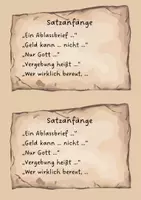 Satzanfänge
„Ein Ablassbrief ..."
„Geld kann ... nicht ..."
„Nur Gott ..."
„Vergebung heißt ..."
„Wer wirklich bereut, ..
Satzanfänge
„Ein Ablassbrief ..."
„Geld kann ... nicht ..."
„Nur Gott ..."
„Vergebung heißt ..."
„Wer wirklich bereut, ..